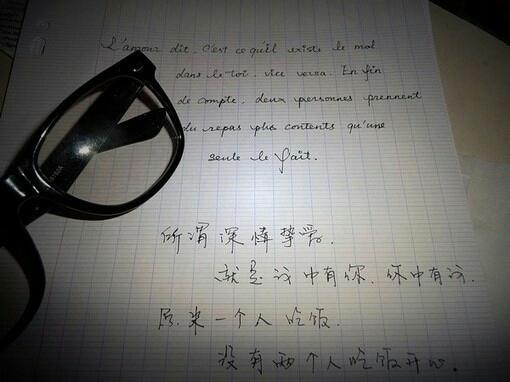 L'amour dit, C'est ce qu'il existe le mol
dans le toi, vice versa. En fin
de compte, deux personnes prennent
du repas plus contents qu'une
seule le fait.
所谓深情挚爱.
就是我中有你.你中有我.
原来一个人吃饭.
没有两个人吃饭开心.